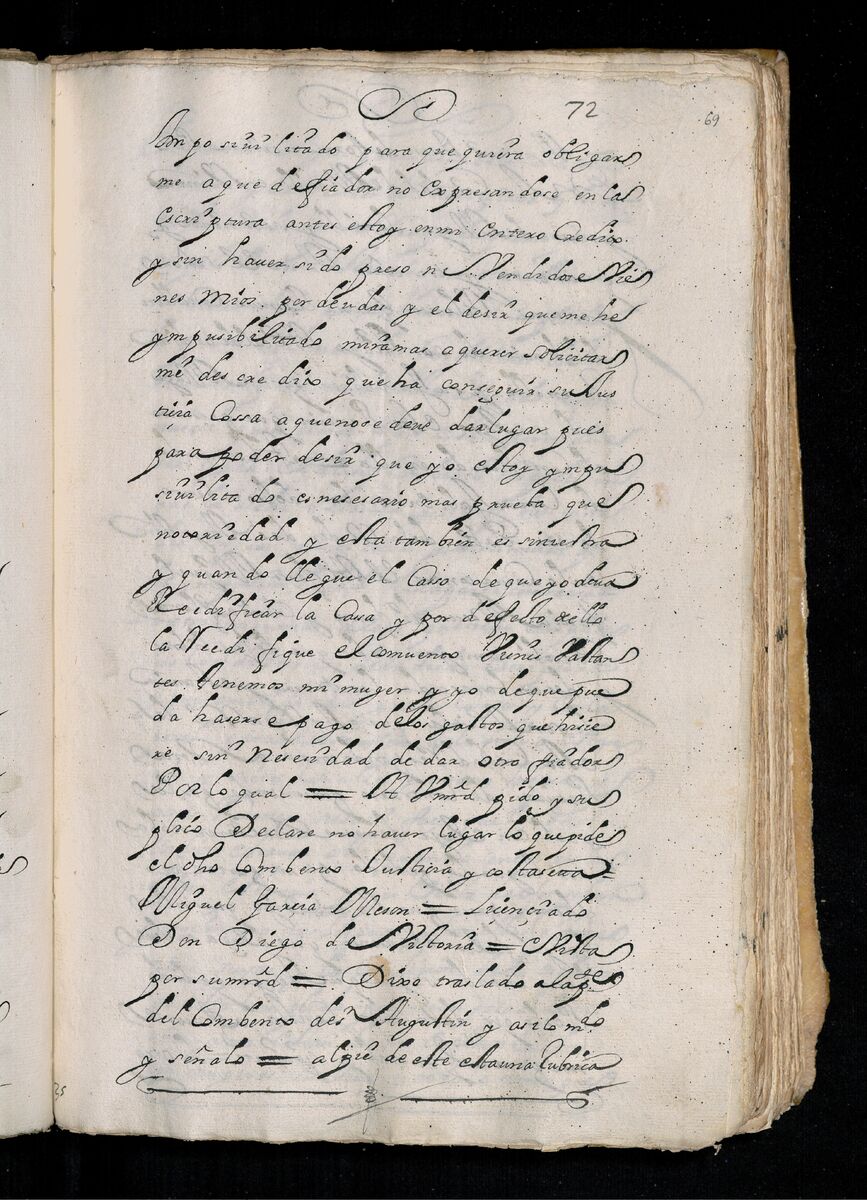 72
69
Ymposiuilitado para que quiera obligar
me a que de fiador no expresandose en la
escriptura antes estoy en mi entero Credito
y sin hauer sido preso ni Vendidose Vie
nes mios por deudas y el desir que me he
ymposibilitado mira mas a querer solicitar
me descredito que ha conseguir su Jus
tiçia Cossa a que no se deue dar lugar pues
para poder desir que yo estoy ympu
siuilitado es nesesario mas prueba que
notoriedad y esta tambien es siniestra
y quando llegue el Caso de que yo deua
Reedificar la Casa y por defecto de ello
la Reedifique el comuento Vienes Vastan
tes tenemos mi muger y yo de que pue
da haserse pago de los gastos que hisie
re sin Nesesidad de dar otro fiador
Por lo qual = A Vmrd pido y su
plico Declare no hauer lugar lo que pide
el dho Combento Justicia y costas etta =
Miguel Garcia Meson = Liçençiado
Don Diego de Victoria = Vista
por su mrd = Dixo traslado a la pte
del Combento de sn Augustin y asi lo mdo
y señalo = al pie de este esta una rubrica
25